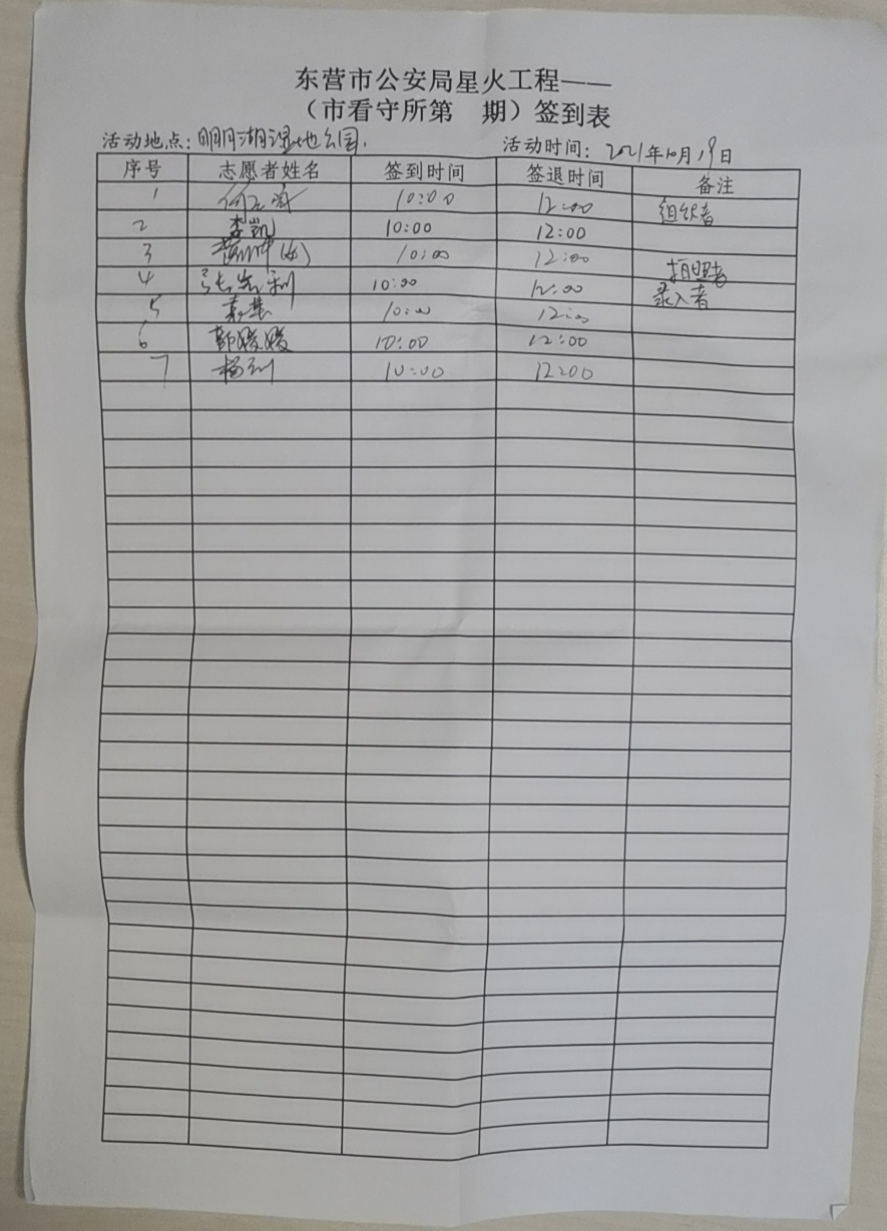 东营市公安局星火工程——
（市看守所第 期）签到表
活动地点：明月湖湿地公园. 活动时间：2021年10月19日
序号 志愿者姓名 签到时间 签退时间 备注
1 10:00 12:00 组织者
2 李凯 10:00 12:00
3 10:00 12:00 拍照者
4 张宪利 10:00 12:00 录入者
5 10:00 12:00
6 郭媛媛 10:00 12:00
7 10:00 12:00